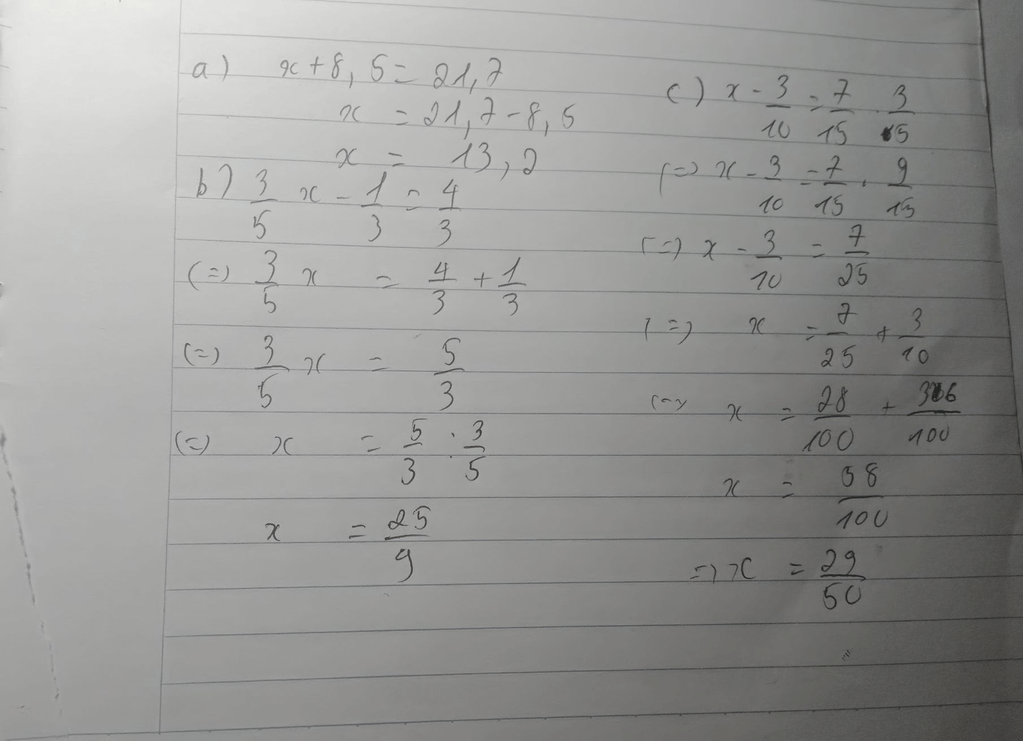 a) x + 8,5 = 21,7
x = 21,7 - 8,5
x = 13,2
b) 3/5 x - 1/3 = 4/3
(=) 3/5 x = 4/3 + 1/3
(=) 3/5 x = 5/3
(=) x = 5/3 : 3/5
x = 25/9
c) x - 3/10 = 7/15 . 3/5
(=) x - 3/10 = 7/15 . 9/15
(=) x - 3/10 = 7/25
(=) x = 7/25 + 3/10
(=) x = 28/100 +
x = 58/100
=> x = 29/50